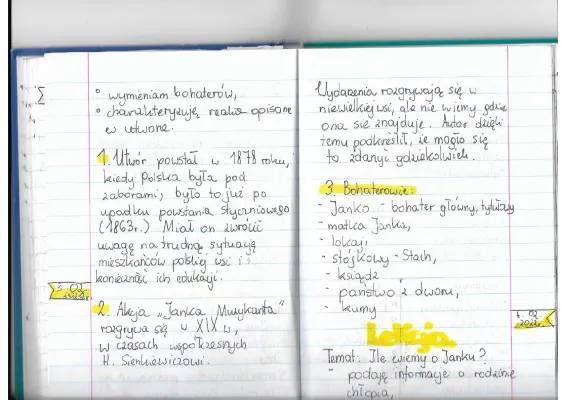 • wymieniam bohaterów,
• charakteryzuję realia opisane
w utworze.
1. Utwór powstał w 1878 roku,
kiedy Polska była pod
zaborami; było to już po
upadku powstania styczniowego
(1863r.) Miał on zwrócić
uwagę na trudną sytuację
mieszkańców polskiej wsi i
konieczność ich edukacji.
2. Akcja "Janka Muzykanta"
rozgrywa się w XIX w.,
w czasach współczesnych
H. Sienkiewiczowi.
Wydarzenia rozgrywają się w
niewielkiej wsi, ale nie wiemy gdzie
ona się znajduje. Autor dzięki
temu podkreślił, że mogło się
to zdarzyć gdziekolwiek.
3. Bohaterowie:
- Janko - bohater główny, tytułowy
- matka Janka,
- lokaj,
- stójkowy - Stach,
- ksiądz
- państwo z dworu,
- kumy
Lekcja
Temat: Ile wiemy o Janku?
- podaję informacje o rodzinie
chłopca,